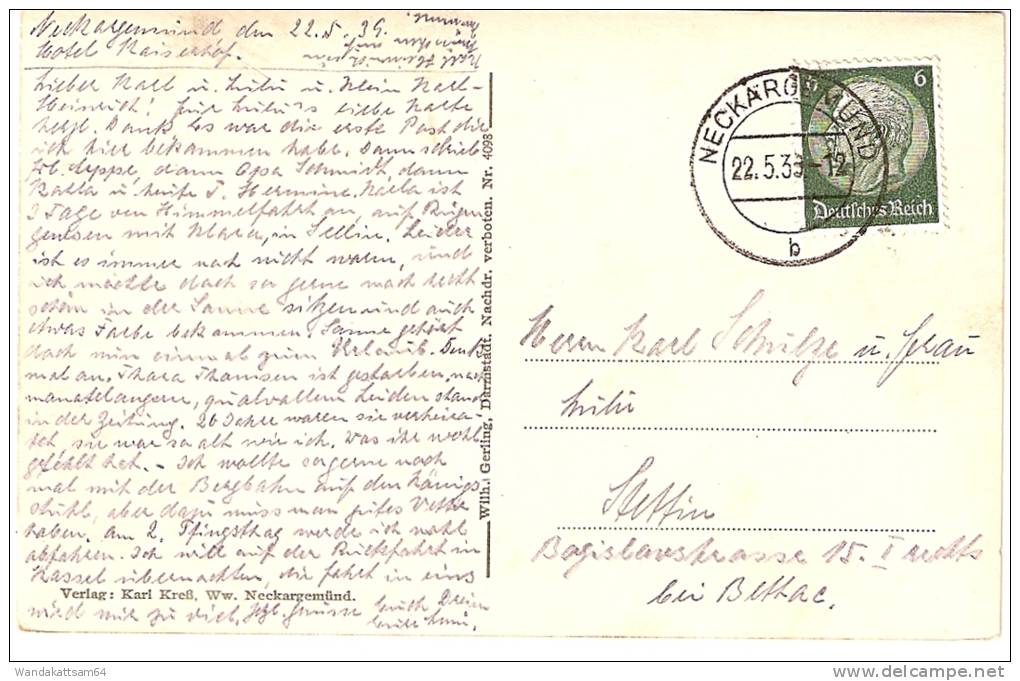 Neckargemünd den 22.5.39.
Hotel Kaiserhof.
Lieber Karl u. Lulu u. Klein Karl-
Heinrich! Für Lulu's liebe Karte
herzl. Dank. Es war die erste Post die
ich hier bekommen habe. Dann schrieb
dann Opa Schmidt, dann
u. heute T. Hermine. ist
3 Tage von Himmelfahrt an, auf Rügen
gewesen mit Klara, in Sellin. Leider
ist es immer noch nicht warm, und
ich möchte doch so gerne noch recht
schön in der Sonne sitzen und auch
etwas Farbe bekommen. Sonne gehört
doch nun einmal zum Urlaub. Denkt
mal an, Thomsen ist gestorben, nach
monatelangem, qualvollem Leiden stand
in der Zeitung. 20 Jahre waren sie verheira-
tet, sie war so alt wie ich. Was ihr wohl
gefehlt hat. - Ich wollte so gerne noch
mal mit der Bergbahn auf den Königs-
stuhl, aber dazu muss man gutes Wetter
haben. Am 2. Pfingsttag werde ich wohl
abfahren. Ich will auf der Rückfahrt in
Kassel übernachten, die Fahrt in eins
wird mir zu viel. Hzl. Grüsse Euch Dreien
Eure
Verlag: Karl Kreß, Ww. Neckargemünd.
Wilh. Gerling, Darmstadt. Nachdr. verboten. Nr. 4098
NECKARGEMÜND
22.5.39-12
b
6
Deutsches Reich
Herrn Karl Schulze u. Frau
Lulu
Stettin
Bogislavstrasse 15. I rechts
bei Bethac.
Wandakattsam64
delcampe.net